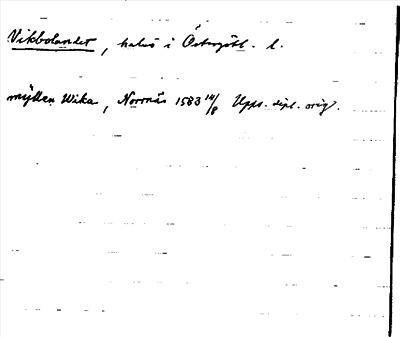 Vikbolandet, halvö i Östergötl. l.
mÿllen Wika, Norrnäs 1583 14/8 Upps. dipl. orig.